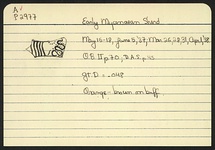 A
P 2977
Early Mycenaean Sherd
May 15-18, June 5, '37, Mar. 26, 28, 31, Apr. 1, '38
p. 70,
gt. D. = .048
Orange-brown on buff.